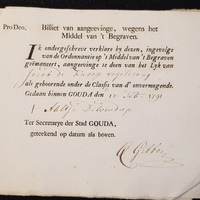 Pro Deo,
Billiet van aangeevinge, wegens het
Middel van 't Begraven.
Ik ondergeschreve verklare by dezen, ingevolge
van de Ordonnantie op 't Middel van 't Begraven
geëmaneert, aangevinge te doen van het Lyk van
Jacob de
als gehoorende onder de Classis van d' onvermogende.
Gedaan binnen GOUDA den
Ter Secretarye der Stad GOUDA,
geteekend op datum als boven.